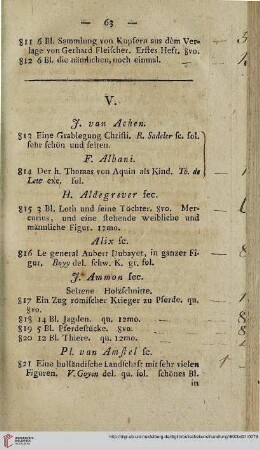 — 63 —
811 6 Bl. Sammlung von Kupfern aus dem Ver-
lage von Gerhard Fleischer. Erstes Heft. 8vo.
812 6 Bl. die nämlichen, noch einmal.
V.
J. van Achen.
813 Eine Grablegung Christi. R. Sadeler sc. fol.
sehr schön und selten.
F. Albani.
814 Der h. Thomas von Aquin als Kind. Th. de
Leu exc. fol.
H. Aldegrever fec.
815 3 Bl. Loth und seine Töchter. 8vo. Mer-
curius, und eine stehende weibliche und
männliche Figur. 12mo.
Alix sc.
816 Le general Aubert Dubayet, in ganzer Fi-
gur. del. schw. K. gr. fol.
J. Ammon fec.
Seltene Holzschnitte.
817 Ein Zug römischer Krieger zu Pferde. qu.
8vo.
818 14 Bl. Jagden. qu. 12mo.
819 5 Bl. Pferdestücke. 8vo.
820 12 Bl. Thiere. qu. 12mo.
Pl. van Amstel sc.
821 Eine holländische Landschaft mit sehr vielen
Figuren. V. Goyen del. qu. fol. schönes Bl.
in